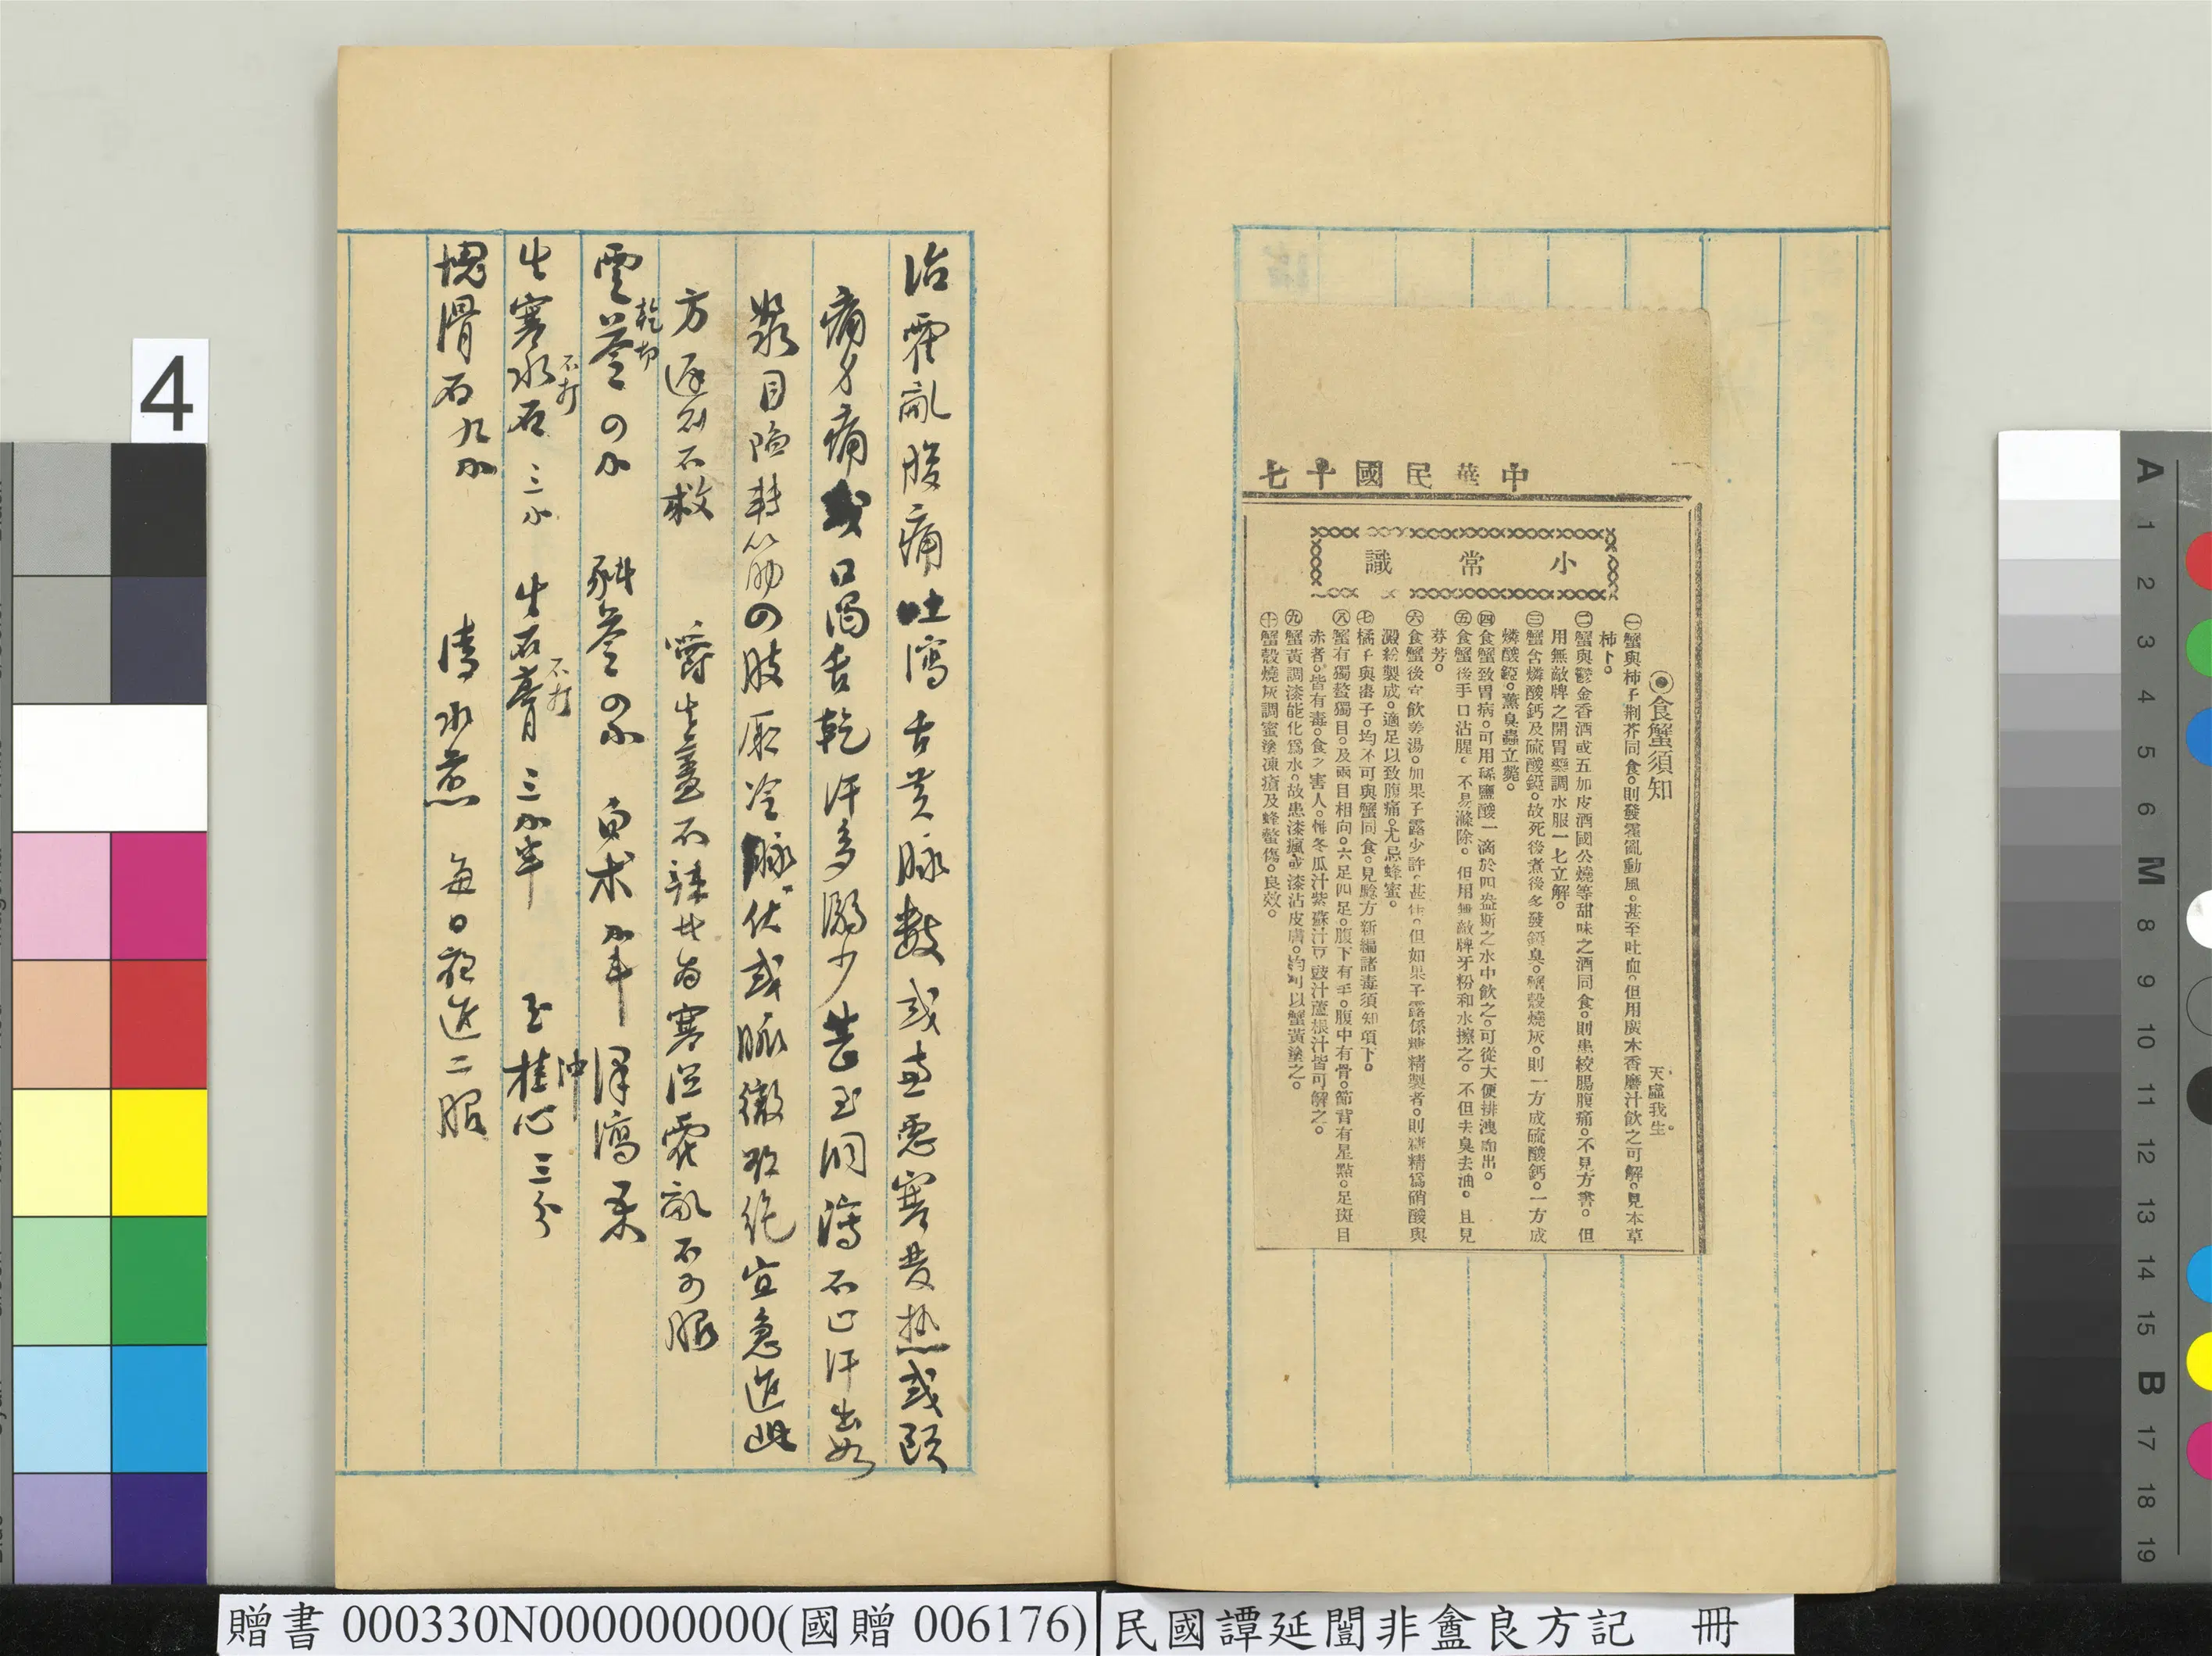 中華民國十七
小常識
◉食蟹須知
天虛我生。
㊀蟹與柿子荆芥同食。則發霍亂動風。甚至吐血。但用廣木香磨汁飲之可解。見本草
柿下。
㊁蟹與鬱金香酒或五加皮酒國公燒等甜味之酒同食。則患絞腸腹痛。不見方書。但
用無敵牌之開胃藥調水服一七立解。
㊂蟹含燐酸鈣及硫酸錏。故死後煮後多發錏臭。蟹殼燒灰。則一方成硫酸鈣。一方成
燐酸錏。薰臭蟲立斃。
㊃食蟹致胃病。可用稀鹽酸一滴於四盎斯之水中飲之。可從大便排洩而出。
㊄食蟹後手口沾腥。不易滌除。但用無敵牌牙粉和水擦之。不但去臭去油。且見
芬芳。
㊅食蟹後宜飲姜湯。加果子露少許。甚佳。但如果子露係糖精製者。則糖精爲硝酸與
澱粉製成。適足以致腹痛。尤忌蜂蜜。
㊆橘子與棗子。均不可與蟹同食。見驗方新編諸毒須知項下。
㊇蟹有獨螯獨目。及兩目相向。六足四足。腹下有毛。腹中有骨。節背有星點。足斑目
赤者。皆有毒。食之害人。惟冬瓜汁紫蘇汁豆豉汁蘆根汁皆可解之。
㊈蟹黃調漆能化爲水。故患漆瘋或漆沾皮膚。均可以蟹黃塗之。
㊉蟹殼燒灰調蜜塗凍瘡及蜂螫傷。良效。
治霍亂腹痛吐瀉舌黃脉數或兼惡寒發热或頭
痛身痛或口渴舌乾汗多溺少甚至洞瀉不止汗出如
漿目陷轉筋四肢厥冷脉伏或脈微欲絶宜急進此
方遲則不救 嚼生薑不辣此爲寒濕霍亂不可服
雲苓四小 乾切 豬苓四小 貞术小半 澤瀉
生寒水石三小 不打 生石膏三小半 不打 玉桂心三分 冲
塊滑石九小 清水煎 每日夜進二服
4
贈書 000330N000000000(國贈 006176)
民國譚延闓非盦良方記 冊
A 1 2 3 4 5 6 M 8 9 10 11 12 13 14 15 B 17 18 19